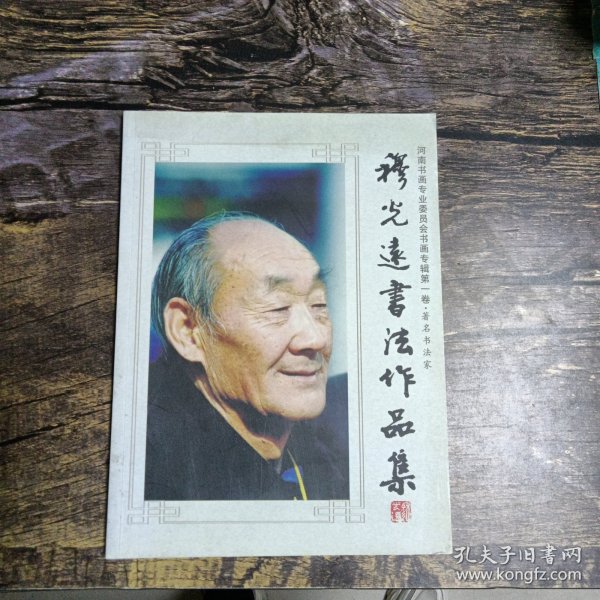 河南书画专业委员会书画专辑第一卷·著名书法家
穆光遠書法作品集
孔夫子旧书网
www.kongfz.com